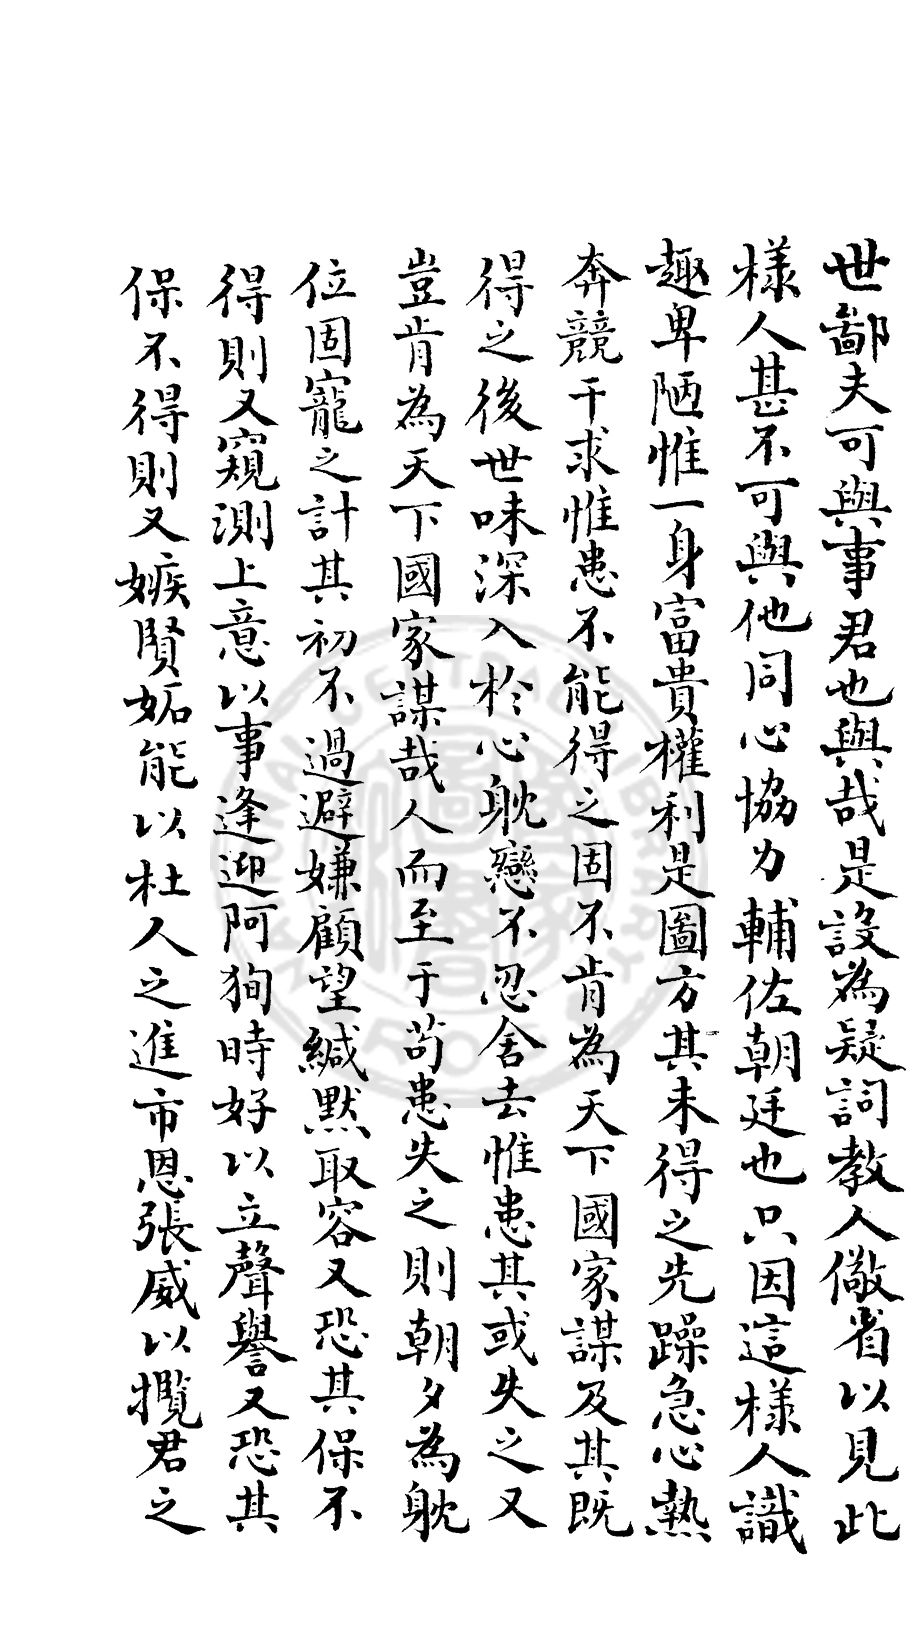 世鄙夫可與事君也與哉是設為疑詞教人儆省以見此
樣人甚不可與他同心協力輔佐朝廷也只因這樣人識
趣卑陋惟一身富貴權利是圖方其未得之先躁急心熱
奔競干求惟患不能得之固不肯為天下國家謀及其既
得之後世味深入於心躭戀不忍舍去惟患其或失之又
豈肯為天下國家謀哉人而至于苟患失之則朝夕為躭
位固寵之計其初不過避嫌顧望緘默取容又恐其保不
得則又窺測上意以事逢迎阿狥時好以立聲譽又恐其
保不得則又嫉賢妬能以杜人之進市恩張威以攬君之